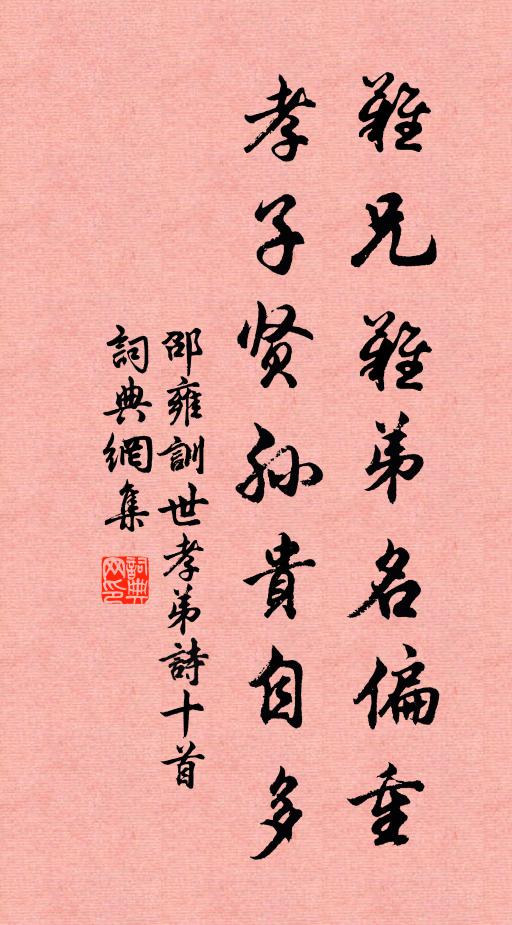 難兄難弟名偏重
孝子贤孙貴自多
邵雍訓世孝弟詩十首
詞典網集
詞典网印